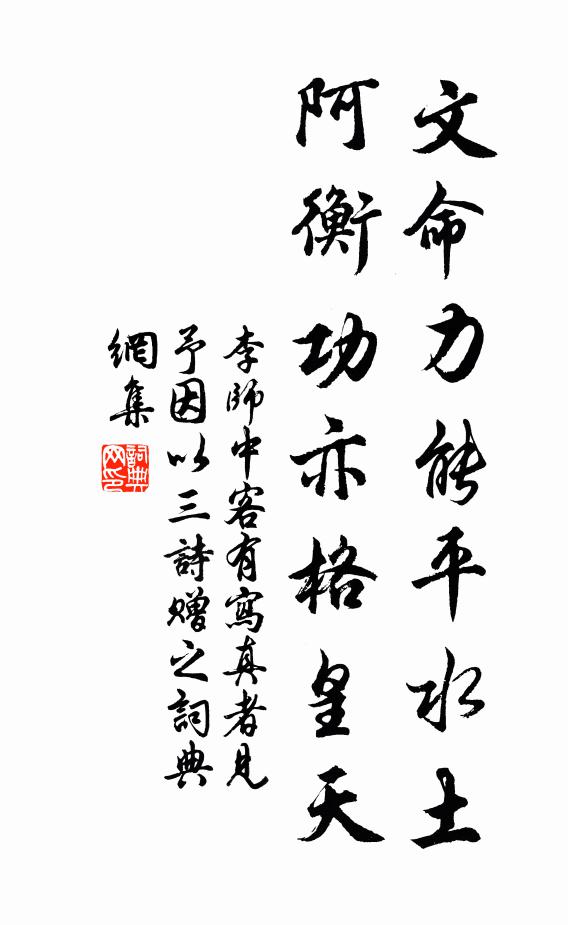 文命力能平水土
阿衡功亦格皇天
李師中客有寫真者見
予因以三詩贈之詞典
網集
詞典
网印